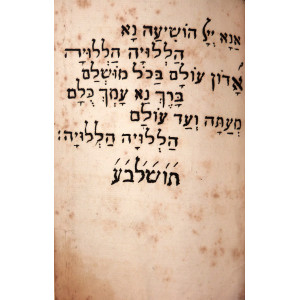 אָנָא יְיָ הוֹשִׁיעָה נָא
הַלְלוּיָהּ הַלְלוּיָהּ
אֲדוֹן עוֹלָם בַּכֹּל מוּשְׁלָם
בָּרֵךְ נָא עַמְּךָ כֻּלָּם
מֵעַתָּה וְעַד עוֹלָם
הַלְלוּיָהּ הַלְלוּיָהּ:
תושלבע